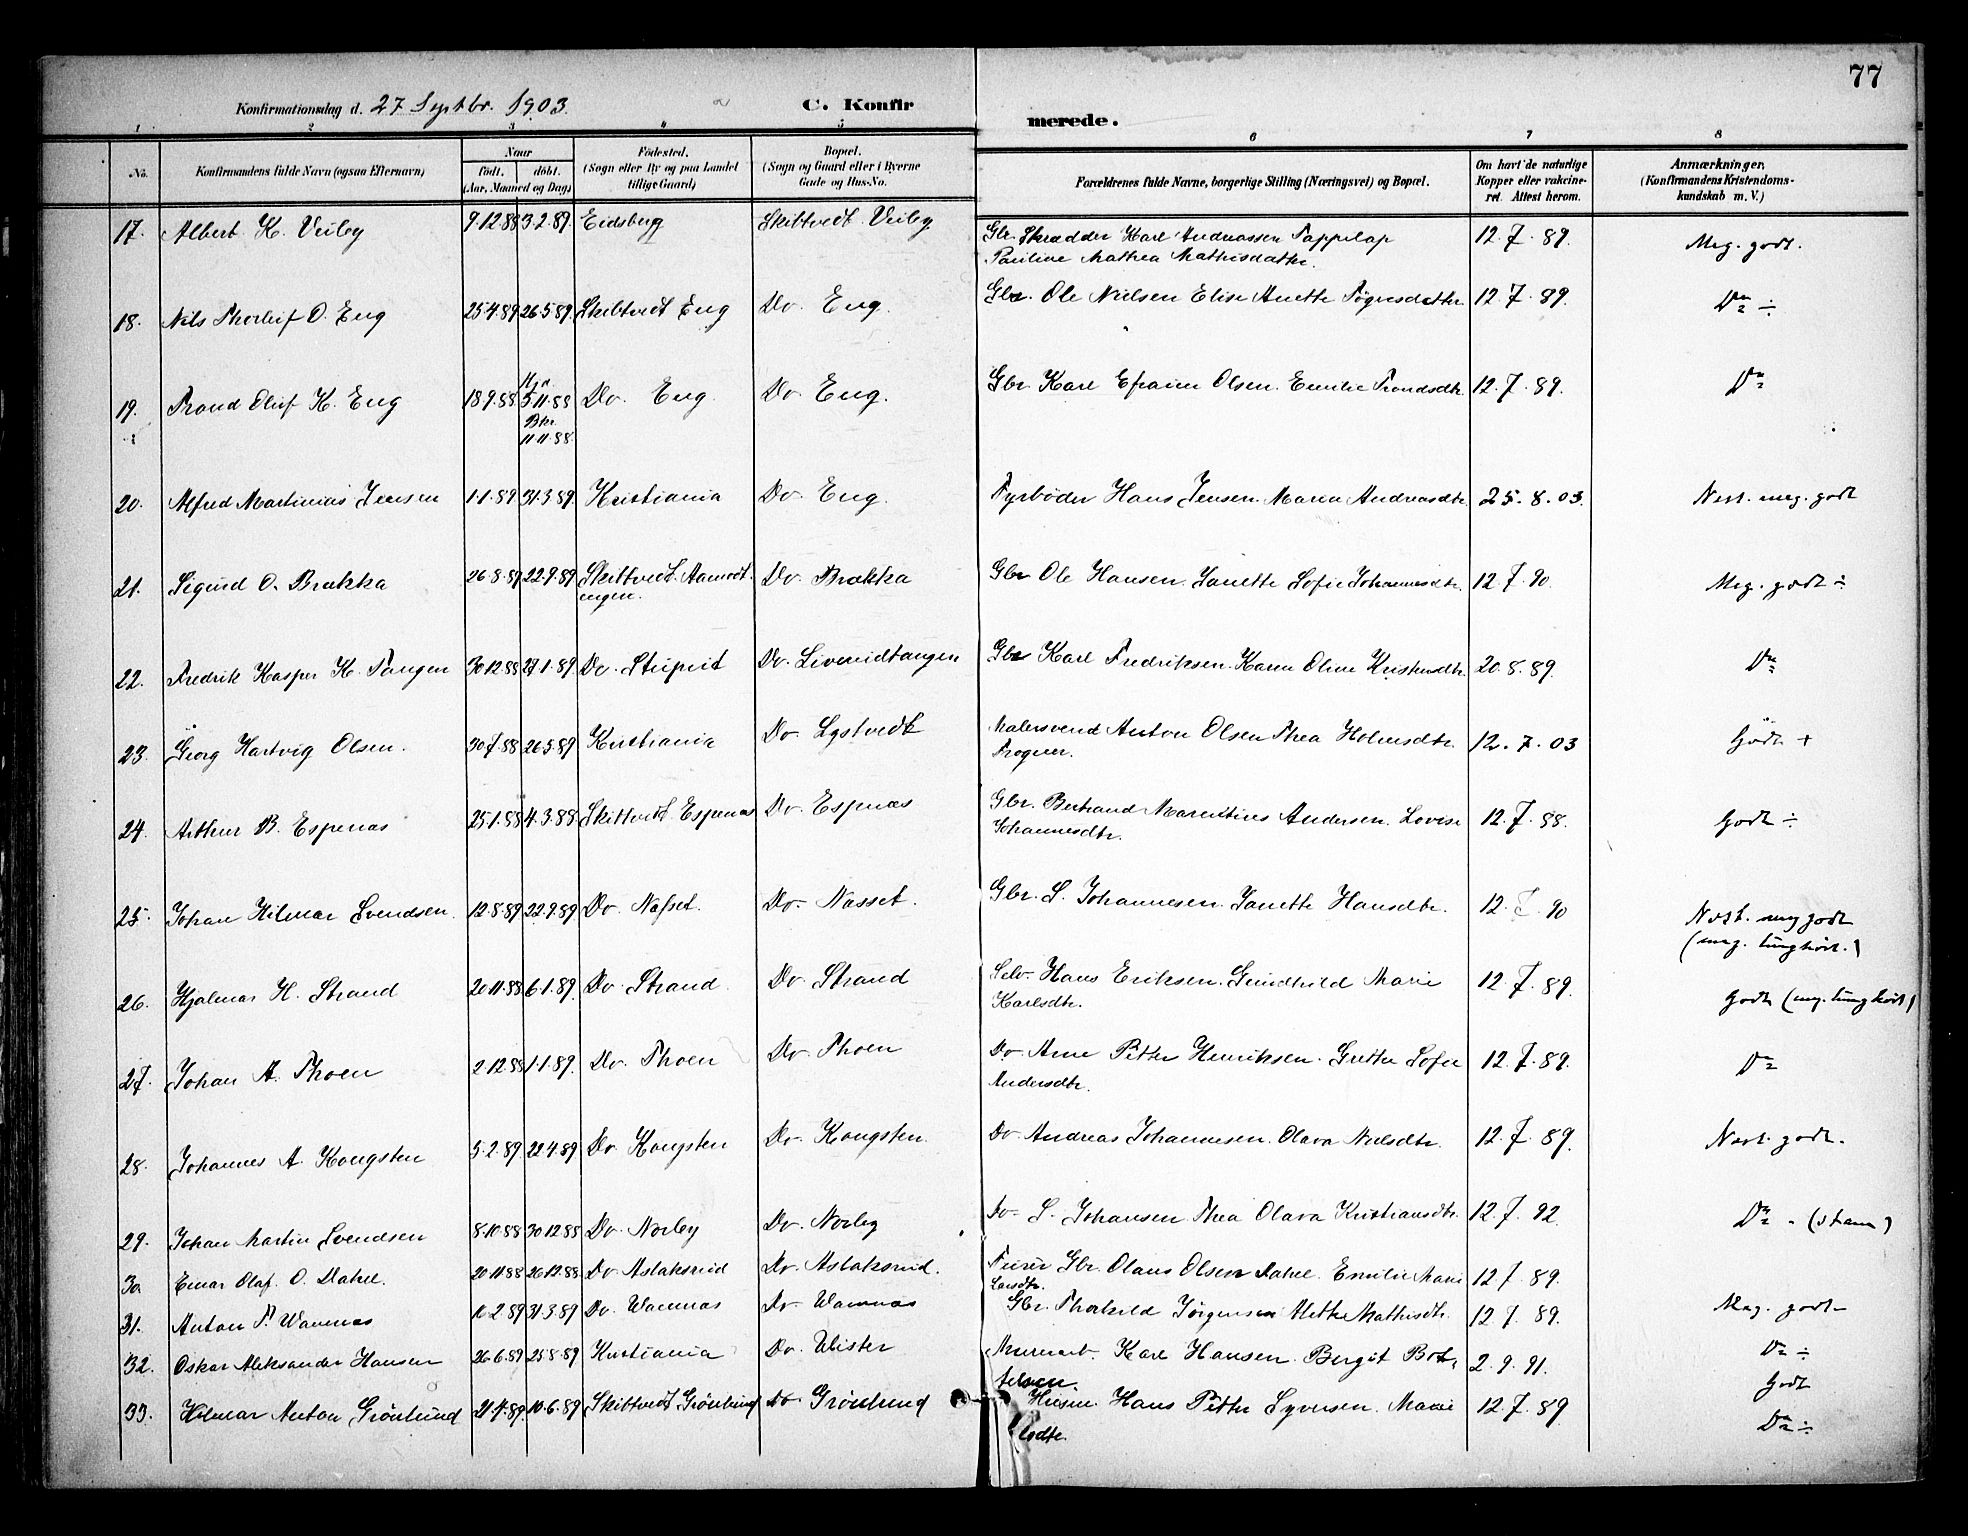 77
Konfirmationsdag d. 27 Septbr. 1903.
C. Konfirmerede.
1 2 3 4 5 6 7 8
No. Konfirmandens fulde Navn (ogsaa Efternavn) Naar født. døbt. (Aar, Maaned og Dag) Fødested. (Sogn eller By og paa Landet tillige Gaard) Bopæl. (Sogn og Gaard eller i Byerne Gade og Hus-No. Forældrenes fulde Navne, borgerlige Stilling (Næringsvei) og Bopæl. Om havt de naturlige Kopper eller vakcineret. Attest herom. Anmærkninger. (Konfirmandens Kristendomskundskab m. V.)
17. Albert K. Veiby 9.12.88 3.2.89 Eidsberg Skibtvedt Veiby Gbr. Skrædder Karl Andreassen Pappelap 12.7.89. Meg. godt.
Pauline Mathea Mathisdatter.
18. Nils Thorleif O. Eng 25.4.89 26.5.89. Skibtvedt Eng Do. Eng. Gbr. Ole Nielsen Elise Anette 12.7.89. Do ÷
19. Trond Oluf K. Eng 18.9.88 Hjd 5.11.88 Do. Eng. Do. Eng. Gbr. Karl Efraim Olsen. Emilie Trondsdtr. 12.7.89. Do
11.11.88.
20. Alfred Martinius Jensen 1.1.89. 31.3.89 Kristiania Do. Eng. Fyrbøder Hans Jensen. Maren Andreasdtr. 25.8.03. Nest. meg. godt
21. Sigurd O. Brækka 26.8.89 22.9.89 Skibtvedt. Aamodt- Do. Brækka Gbr. Ole Hansen. Janette Sofie Johannesdtr. 12.7.90. Meg. godt ÷
engen.
22. Fredrik Kasper K. Tangen 30.12.88 27.1.89 Do. Do. Karl Fredriksen. Karen Oline Kristensdtr. 20.8.89. Do
23. Georg Hartvig Olsen. 30.7.88 26.5.89 Kristiania Do. Lystvedt Malersvend Anton Olsen Thea Holmsdtr. 12.7.03 Godt +
Frogner.
24. Arthur B. Espenæs 25.1.88 4.3.88. Skibtvedt. Espenæs Do. Espenæs Gbr. Bertrand Andersen. Lovise 12.7.88. Godt ÷
Johannesdtr.
25. Johan Hilmar Svendsen. 12.8.89 22.9.89 Do. Næset. Do. Næsset. Gbr. S. Johannesen. Janette Hansdtr. 12.7.90 Nest. meg godt
(meg. tunghørt.)
26. Hjalmar H. Strand 20.11.88 6.1.89. Do. Strand. Do. Strand Selv. Hans Eriksen. Gundhild Marie 12.7.89. Godt (meg. tunghørt)
Karlsdtr.
27. Johan A. Thoen 2.12.88 1.1.89. Do. Thoen Do. Thoen Do. Arne Petter Henriksen. Grethe Sofie 12.7.89. Do
Andersdtr.
28. Johannes A. Kongsten 5.2.89. 22.4.89 Do. Kongsten Do. Kongsten. Do. Andreas Johannesen. Olava Nielsdtr. 12.7.89. Nest. godt.
29. Johan Martin Svendsen 8.10.88 30.12.88 Do. Norby Do. Norby Do. S. Johansen. Thea Olava Kristiansdtr. 12.7.92. Do. (stam)
30 Einar Olaf O. Dahl. 20.11.88 26.12.88 Do. Aslaksrud Do. Aslaksrud. Gbr. Olaus Olsen Dahl. Emilie Marie 12.7.89.
Larsdtr.
31. Anton T. Wamnæs 10.2.89 31.3.89 Do. Wamnæs Do. Wamnæs Gbr. Thorkild Jørgensen Alethe Mathisdtr. 12.7.89. Meg. godt
32. Oskar Aleksander Hansen 26.6.89 25.8.89 Kristiania Do. Ulister Murerarb. Karl Hansen. Bergit 2.9.91. Do ÷
Godt
33. Hilmar Anton Grønlund 21.4.89. 10.6.89 Skibtvedt Grønlund Do. Grønlund Husm. Hans Petter Syversen. Marie 12.7.89 Do ÷